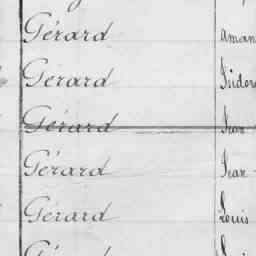 Gérard aman
Gérard Isidor
Gérard Jean
Gérard Jean
Gérard Louis
Gérard